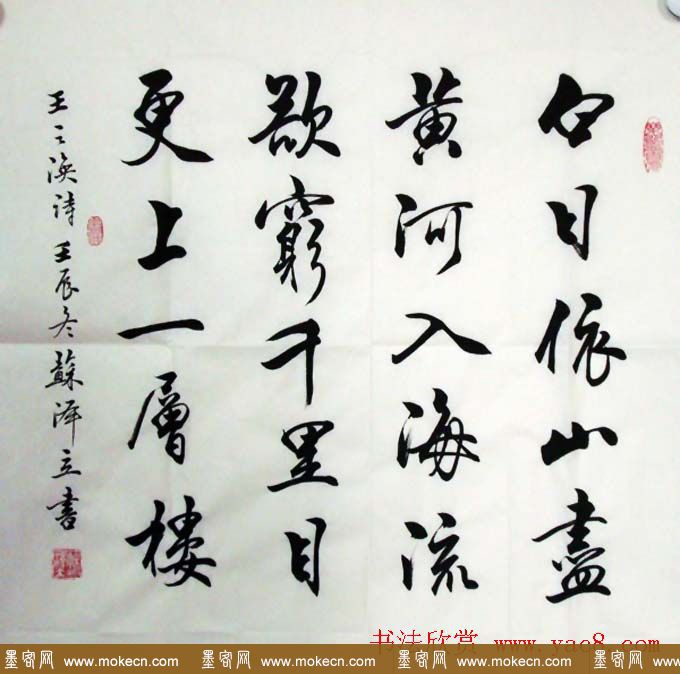 白日依山盡
黄河入海流
欲窮千里目
更上一層樓
王之渙诗 壬辰冬 蘇泽立書
书法欣赏 www.yac8.com
墨客网 www.mokecn.com 墨客网 www.mokecn.com 墨客网 www.mokecn.com 墨客网